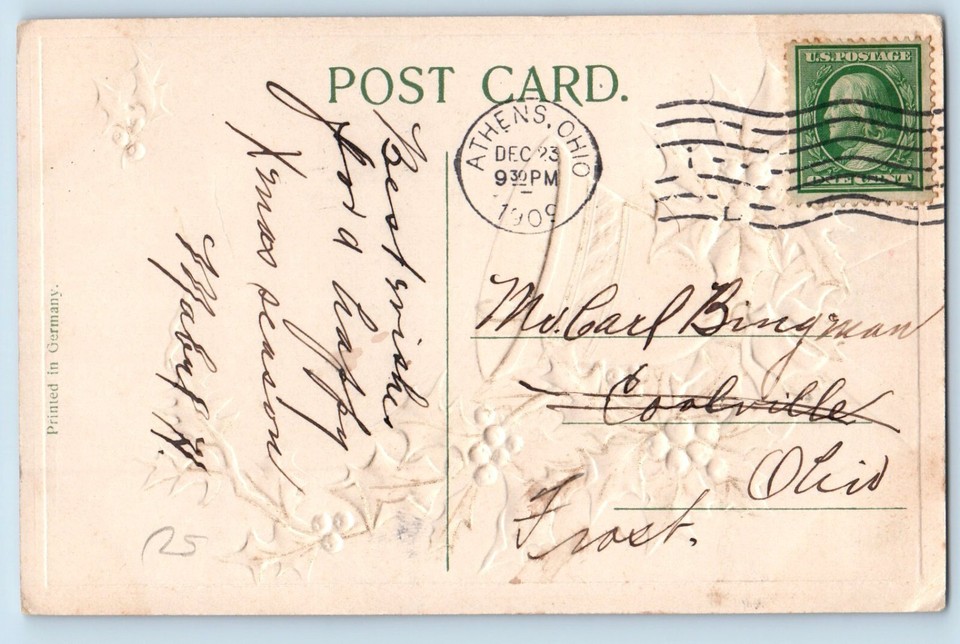 POST CARD.
U.S. POSTAGE
ONE CENT
ATHENS, OHIO
DEC 23
9 30 PM
1909
Best wishes
for a happy
Xmas season
Mabel H.
Mr. Carl Bingman
Coolville
Ohio
Frost.
Printed in Germany.
25